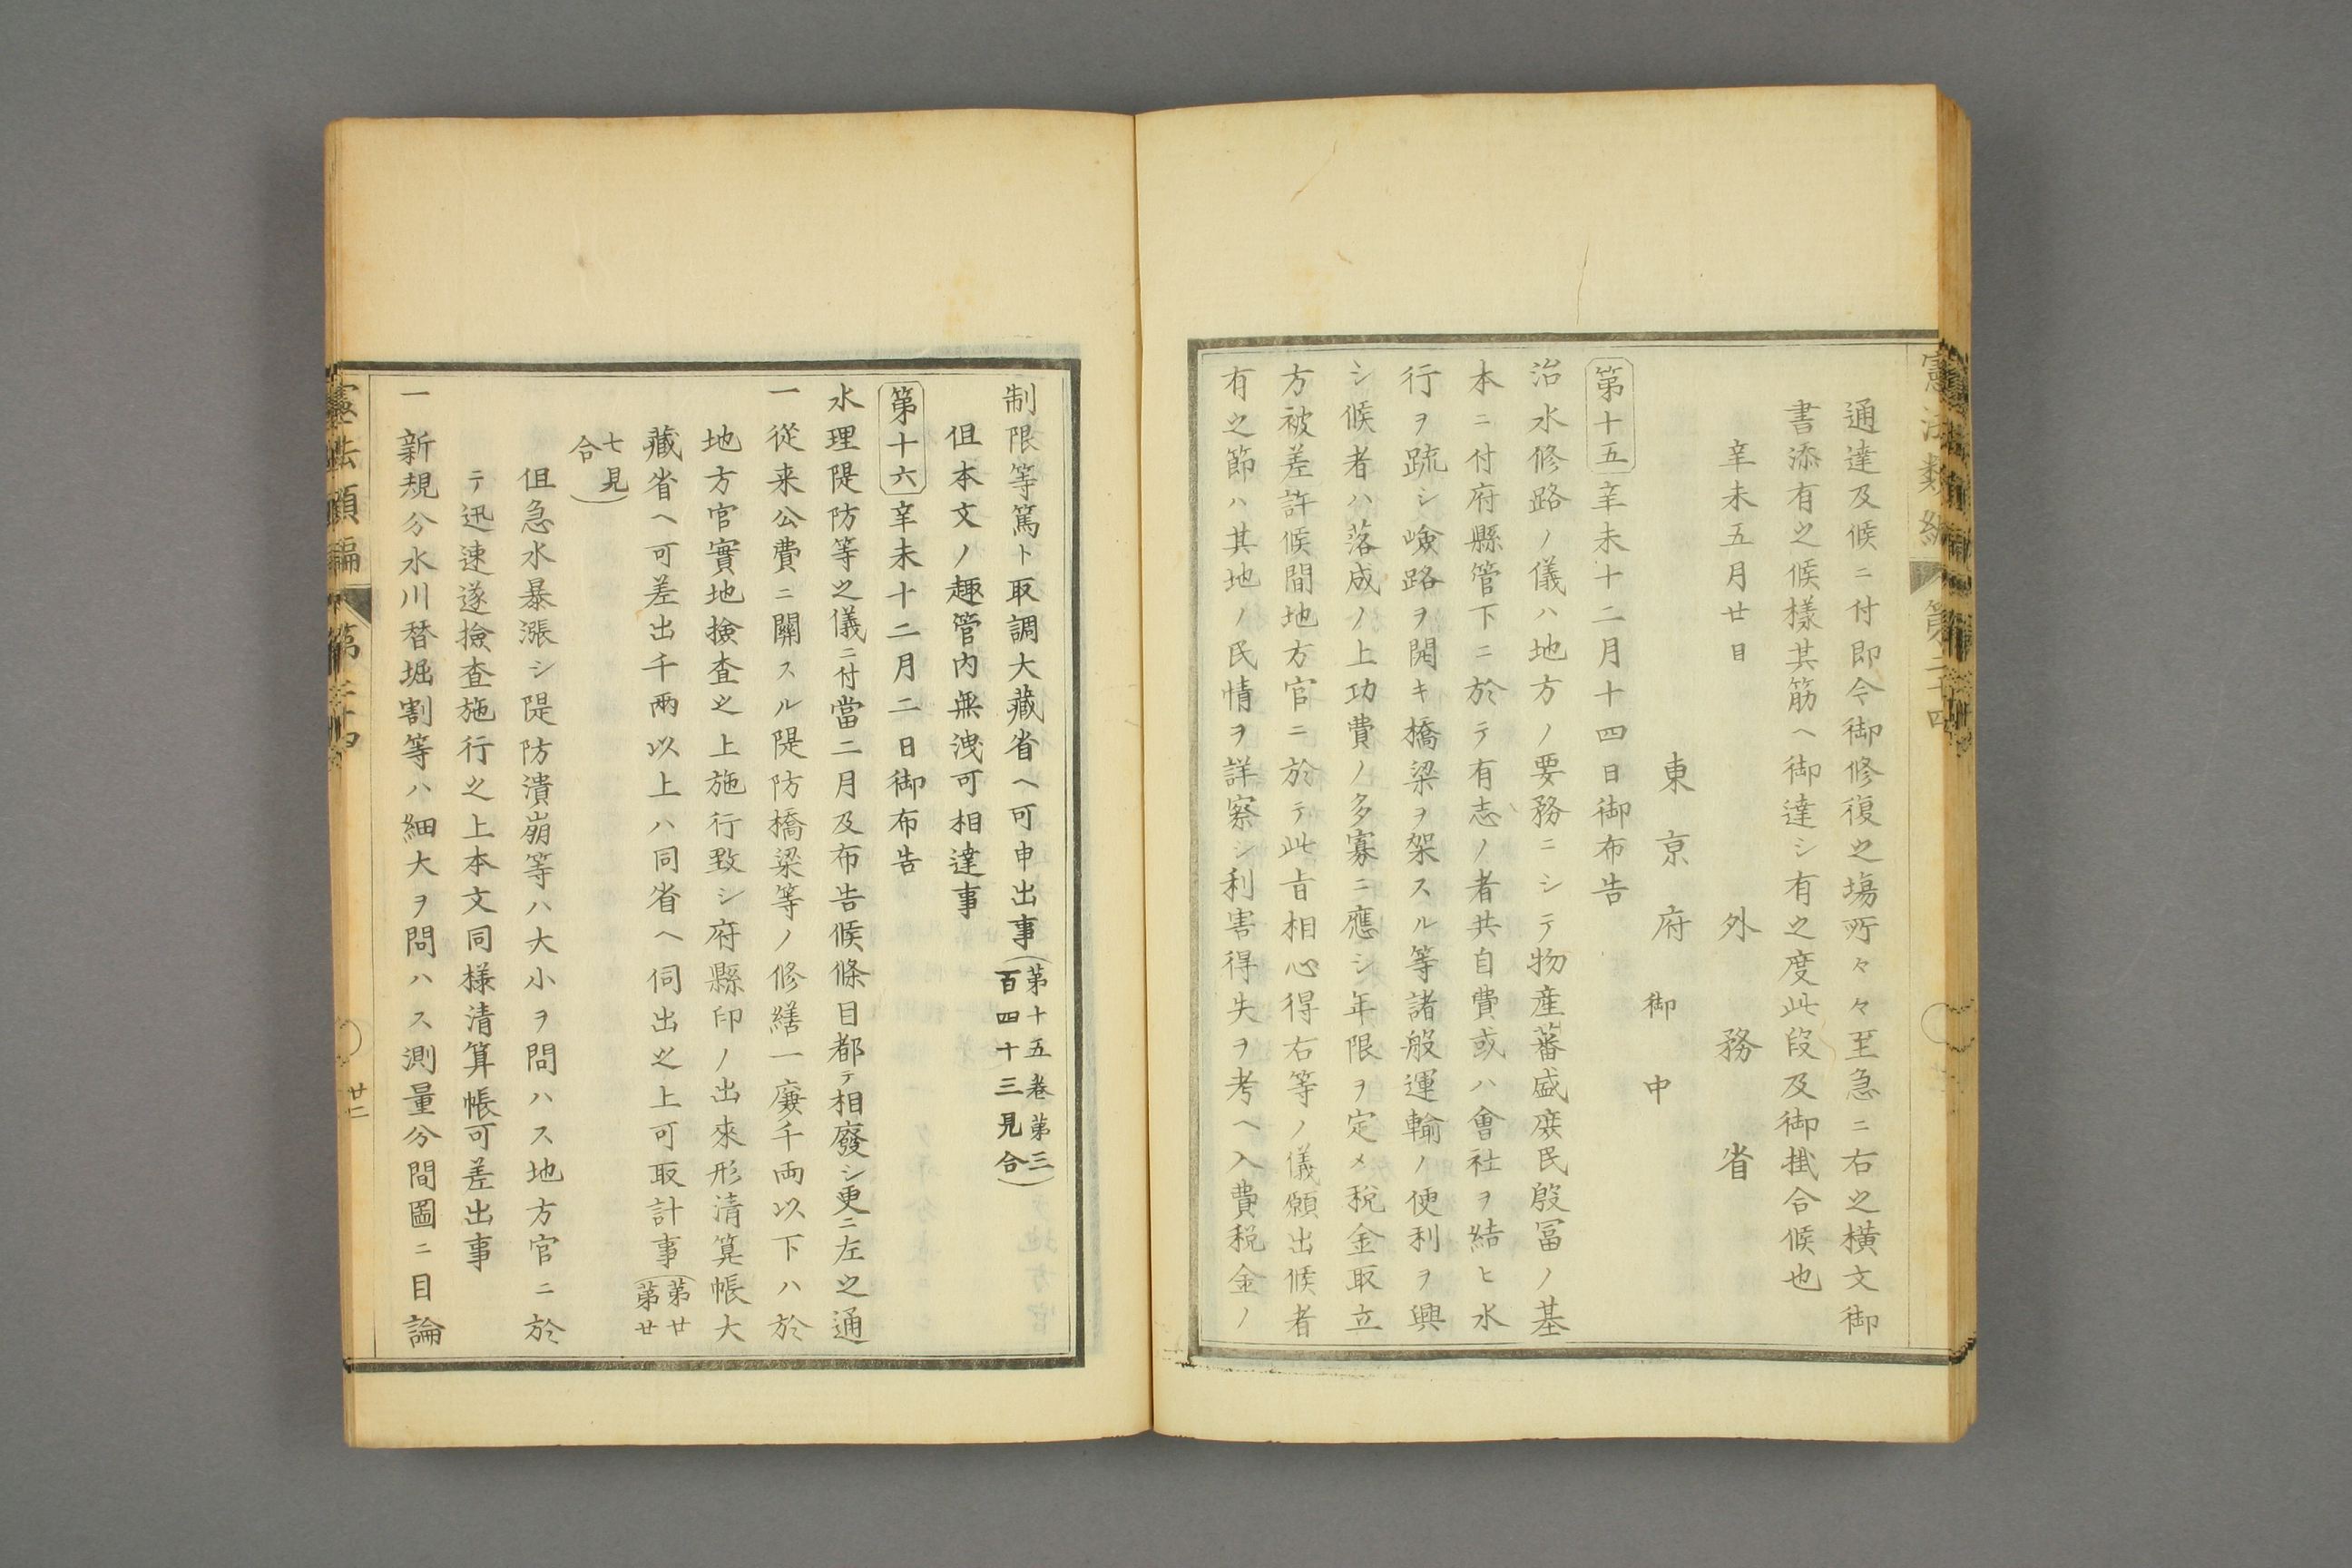 通達及候ニ付即今御修復之塲所々々至急ニ右之横文御
書添有之候樣其筋ヘ御達シ有之度此段及御掛合候也
辛未五月廿日
外務省
東京府
御中
第十五 辛未十二月十四日御布告
治水修路ノ儀ハ地方ノ要務ニシテ物産蕃盛庶民殷冨ノ基
本ニ付府縣管下ニ於テ有志ノ者共自費或ハ會社ヲ結ヒ水
行ヲ疏シ嶮路ヲ開キ橋梁ヲ架スル等諸般運輸ノ便利ヲ興
シ候者ハ落成ノ上功費ノ多寡ニ應シ年限ヲ定メ税金取立
方被差許候間地方官ニ於テ此旨相心得右等ノ儀願出候者
有之節ハ其地ノ民情ヲ詳察シ利害得失ヲ考ヘ入費税金ノ
制限等篤ト取調大藏省ヘ可申出事(第十五卷第三百四十三見合)
但本文ノ趣管内無洩可相達事
第十六 辛未十二月二日御布告
水理隄防等之儀ニ付當二月及布告候條目都テ相廢シ更ニ左之通
一從来公費ニ關スル隄防橋梁等ノ修繕一廉千両以下ハ於
地方官實地撿査之上施行致シ府縣印ノ出來形清算帳大
藏省ヘ可差出千兩以上ハ同省ヘ伺出之上可取計事(第廿第廿
七見合)
但急水暴漲シ隄防潰崩等ハ大小ヲ問ハス地方官ニ於
テ迅速遂撿査施行之上本文同様清算帳可差出事
一新規分水川瞀堀割等ハ細大ヲ問ハス測量分間圖ニ目論
憲法類編
第二十四
廿二